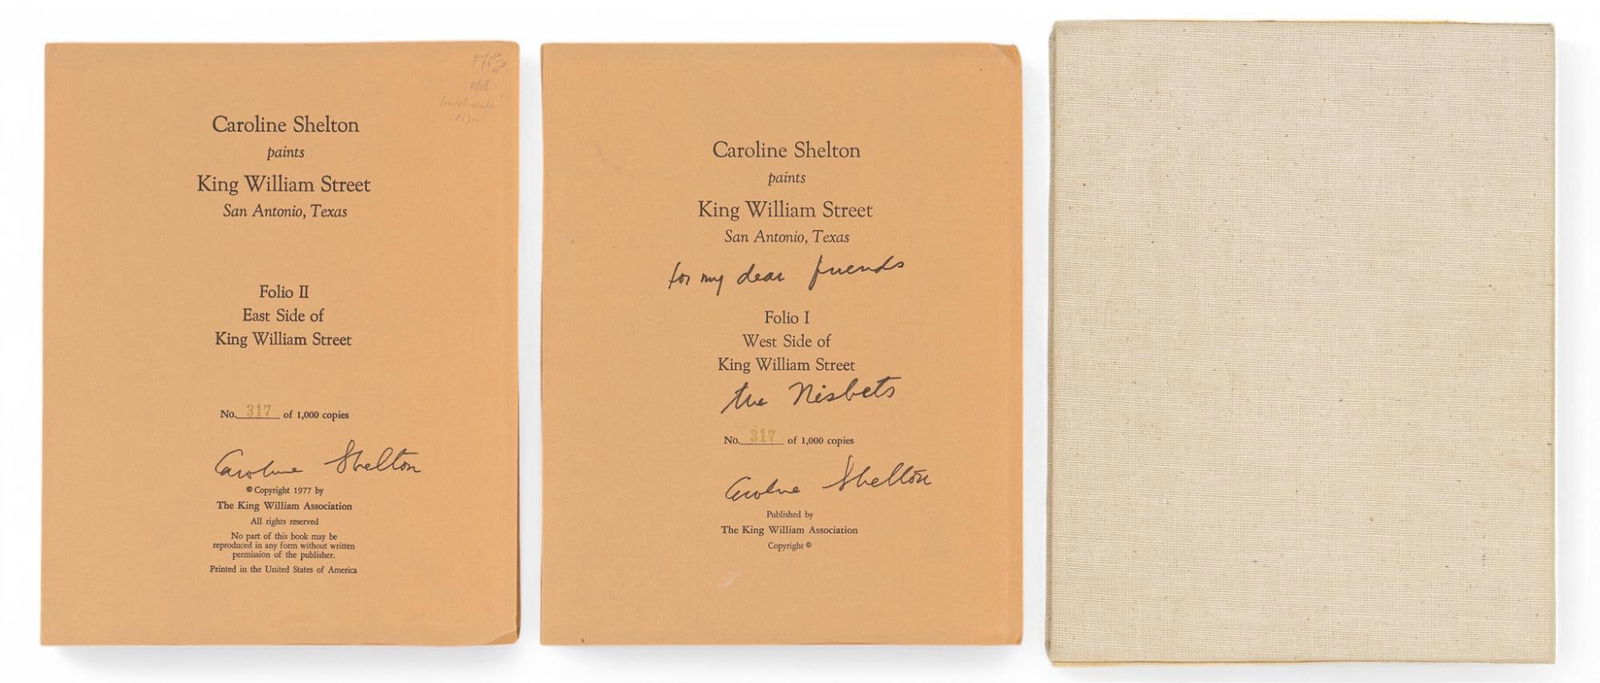 Caroline Shelton
paints
King William Street
San Antonio, Texas
Folio II
East Side of
King William Street
No. 317 of 1,000 copies
Caroline Shelton
© Copyright 1977 by
The King William Association
All rights reserved
No part of this book may be
reproduced in any form without written
permission of the publisher.
Printed in the United States of America
Caroline Shelton
paints
King William Street
San Antonio, Texas
for my dear friends
Folio I
West Side of
King William Street
the Nisbets
No. 317 of 1,000 copies
Caroline Shelton
Published by
The King William Association
Copyright ©